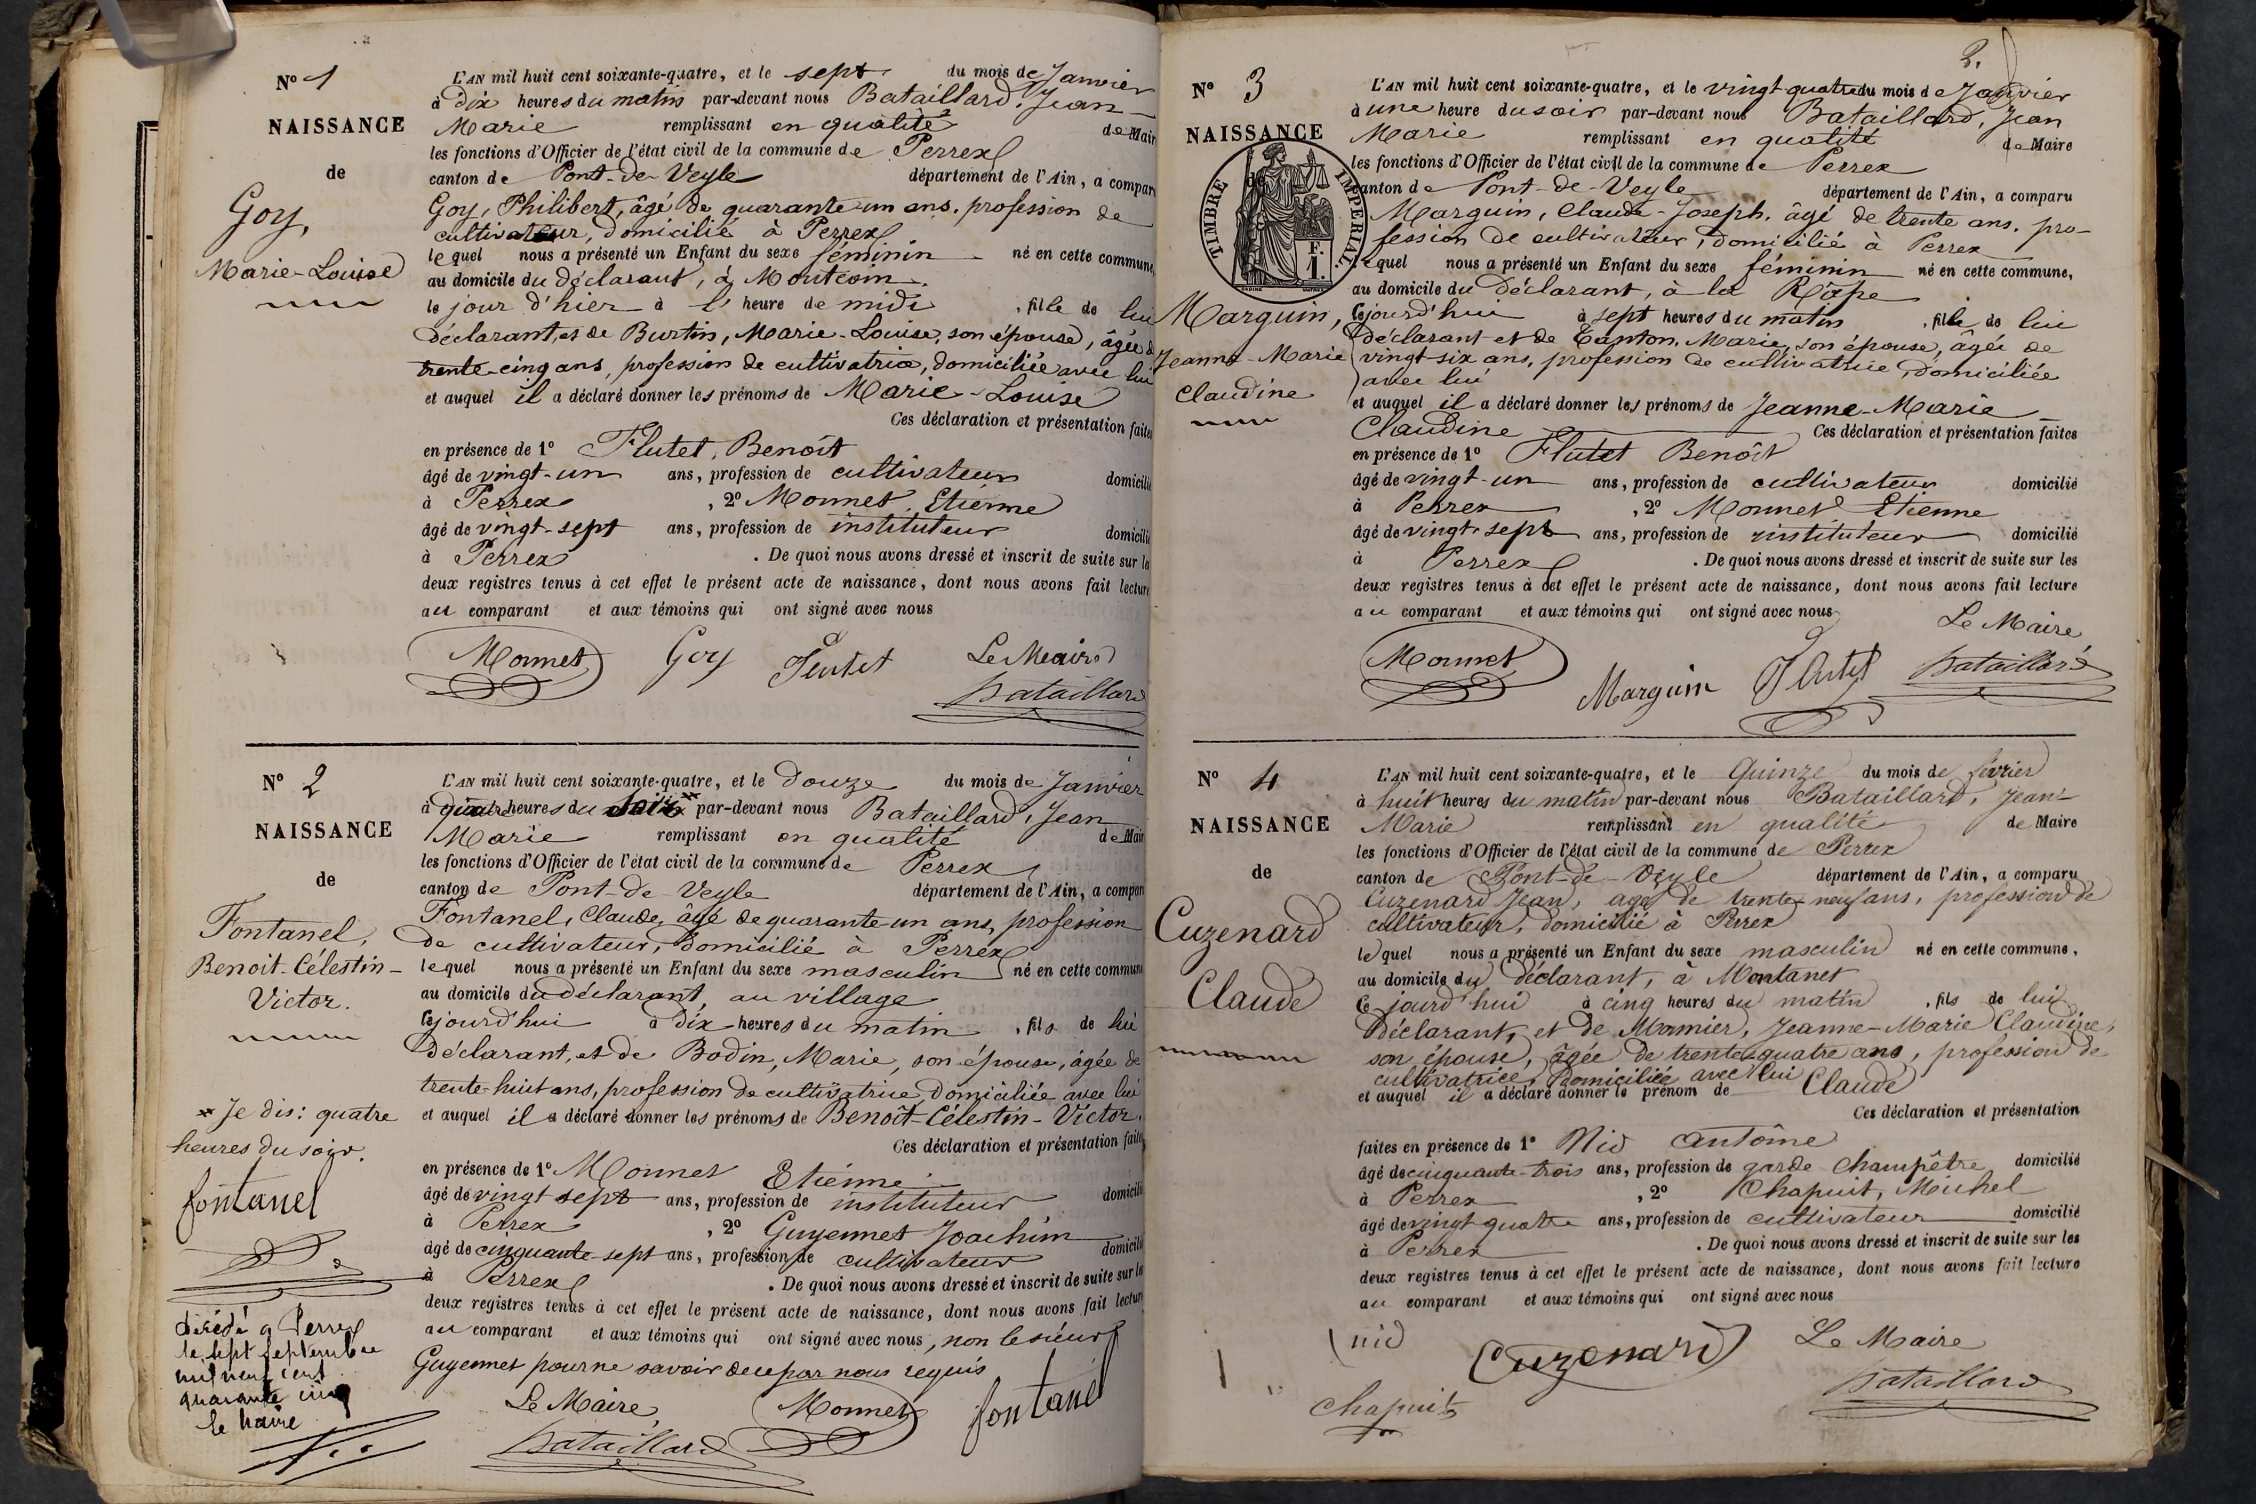 N° 1
NAISSANCE
de
Goy,
Marie-Louise
L'AN mil huit cent soixante-quatre, et le sept du mois de Janvier
à dix heures du matin par-devant nous Bataillard, Jean
Marie remplissant en qualité de Mair
les fonctions d'Officier de l'état civil de la commune de Perrex
canton de Pont-de-Veyle département de l'Ain, a compar
Goy, Philibert, âgé de quarante un ans, profession de
cultivateur, domicilié à Perrex
lequel nous a présenté un Enfant du sexe féminin né en cette commune,
au domicile du déclarant, à Montcoin.
le jour d'hier à l' heure de midi , fille de lui
déclarant, et de Burtin, Marie-Louise, son épouse, âgée d
trente-cinq ans, profession de cultivatrice, domiciliée avec lui
et auquel il a déclaré donner les prénoms de Marie-Louise
Ces déclaration et présentation faites
en présence de 1° Flutet, Benoît
âgé de vingt-un ans, profession de cultivateur domicilié
à Perrex , 2° Monnet, Etienne
âgé de vingt-sept ans, profession de instituteur domicilié
à Perrex . De quoi nous avons dressé et inscrit de suite sur le
deux registres tenus à cet effet le présent acte de naissance, dont nous avons fait lecture
au comparant et aux témoins qui ont signé avec nous
Monnet Goy Flutet Le Maire
Bataillard
N° 2
NAISSANCE
de
Fontanel,
Benoit-Célestin-
Victor.
L'AN mil huit cent soixante-quatre, et le douze du mois de Janvier
à quatre heures du soir par-devant nous Bataillard, Jean
Marie remplissant en qualité de Mair
les fonctions d'Officier de l'état civil de la commune de Perrex
canton de Pont-de-Veyle département de l'Ain, a compar
Fontanel, Claude, âgé de quarante un ans, profession
de cultivateur, domicilié à Perrex
lequel nous a présenté un Enfant du sexe masculin né en cette commun
au domicile du déclarant, au village
cejourd'hui à dix heures du matin , fils de lui
déclarant, et de Bodin, Marie, son épouse, âgée de
trente-huit ans, profession de cultivatrice, domiciliée avec lui
et auquel il a déclaré donner les prénoms de Benoît-Célestin-Victor.
Ces déclaration et présentation faites
en présence de 1° Monnet Etienne
âgé de vingt sept ans, profession de instituteur domicilié
à Perrex , 2° Guyennet Joachim
âgé de cinquante-sept ans, profession de cultivateur domicilié
à Perrex . De quoi nous avons dressé et inscrit de suite sur les
deux registres tenus à cet effet le présent acte de naissance, dont nous avons fait lecture
au comparant et aux témoins qui ont signé avec nous, non le sieur
Guyennet pour ne savoir de ce par nous requis
Le Maire, Monnet fontanel
Bataillard
* Je dis: quatre
heures du soir.
fontanel
décédé a Perrex
le sept septembre
mil neuf cent
quarante cinq
le Maire
2.
N° 3
NAISSANCE
de
TIMBRE IMPERIAL.
F.
1.
Marguin,
Jeanne-Marie
Claudine
L'AN mil huit cent soixante-quatre, et le vingt quatre du mois de Janvier
à une heure du soir par-devant nous Bataillard, Jean
Marie remplissant en qualité de Maire
les fonctions d'Officier de l'état civil de la commune de Perrex
canton de Pont-de-Veyle département de l'Ain, a comparu
Marguin, Claude-Joseph, âgé de trente ans, pro-
fession de cultivateur, domicilié à Perrex
lequel nous a présenté un Enfant du sexe féminin né en cette commune,
au domicile du déclarant, à la Râpe
cejourd'hui à sept heures du matin , fille de lui
déclarant et de Tanton, Marie, son épouse, âgée de
vingt-six ans, profession de cultivatrice, domiciliée
avec lui
et auquel il a déclaré donner les prénoms de Jeanne-Marie
Claudine Ces déclaration et présentation faites
en présence de 1° Flutet Benoît
âgé de vingt-un ans, profession de cultivateur domicilié
à Perrex , 2° Monnet Etienne
âgé de vingt-sept ans, profession de instituteur domicilié
à Perrex . De quoi nous avons dressé et inscrit de suite sur les
deux registres tenus à cet effet le présent acte de naissance, dont nous avons fait lecture
au comparant et aux témoins qui ont signé avec nous
Le Maire
Monnet Marguin Flutet Bataillard
N° 4
NAISSANCE
de
Cuzenard
Claude
L'AN mil huit cent soixante-quatre, et le Quinze du mois de février
à huit heures du matin par-devant nous Bataillard, Jean-
Marie remplissant en qualité de Maire
les fonctions d'Officier de l'état civil de la commune de Perrex
canton de Pont-de-Veyle département de l'Ain, a comparu
Cuzenard Jean, agé de trente-neuf ans, profession de
cultivateur, domicilié à Perrex
lequel nous a présenté un Enfant du sexe masculin né en cette commune,
au domicile du déclarant, à Montanet
Ce jourd'hui à cinq heures du matin , fils de lui
Déclarant, et de Mamier, Jeanne-Marie Claudine,
son épouse, âgée de trente-quatre ans, profession de
cultivatrice, Domiciliée avec lui
et auquel il a déclaré donner le prénom de Claude
Ces déclaration et présentation
faites en présence de 1° Nid Antoine
âgé de cinquante-trois ans, profession de garde champêtre domicilié
à Perrex , 2° Chapuit, Michel
âgé de vingt quatre ans, profession de cultivateur domicilié
à Perrex . De quoi nous avons dressé et inscrit de suite sur les
deux registres tenus à cet effet le présent acte de naissance, dont nous avons fait lecture
au comparant et aux témoins qui ont signé avec nous
nid Cuzenard Le Maire
Chapuit Bataillard